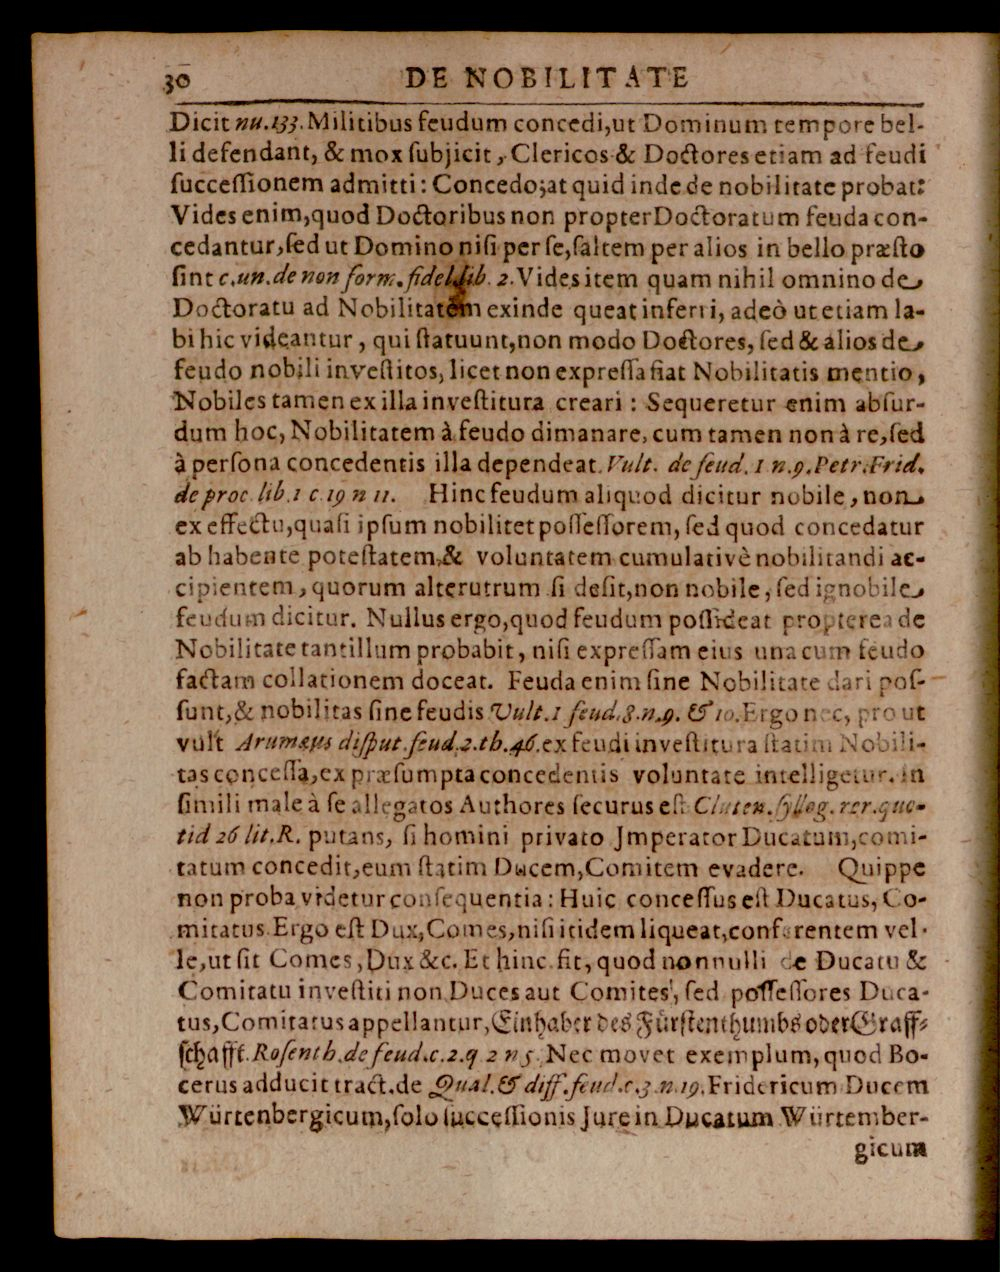 30 DE NOBILITATE
Dicit nu.133. Militibus feudum concedi,ut Dominum tempore bel-
li defendant, & mox ſubjicit, Clericos & Doctores etiam ad feudi
ſucceſſionem admitti: Concedo;at quid inde de nobilitate probat?
Vides enim,quod Doctoribus non propter Doctoratum feuda con-
cedantur,ſed ut Domino niſi per ſe,ſaltem per alios in bello præſto
ſint c.un.de non form.fidel.lib. 2.Vides item quam nihil omnino de
Doctoratu ad Nobilitatem exinde queat inferri, adeò ut etiam la-
bi hic videantur, qui ſtatuunt,non modo Doctores, ſed & alios de
feudo nobili inveſtitos, licet non expreſſa fiat Nobilitatis mentio,
Nobiles tamen ex illa inveſtitura creari: Sequeretur enim abſur-
dum hoc, Nobilitatem à feudo dimanare, cum tamen non à re,ſed
à perſona concedentis illa dependeat.Vult. de feud. 1 n.9.Petr.Frid.
de proc lib.1 c.19 n 11. Hinc feudum aliquod dicitur nobile, non
ex effectu,quaſi ipſum nobilitet poſſeſſorem, ſed quod concedatur
ab habente poteſtatem,& voluntatem cumulativè nobilitandi ac-
cipientem, quorum alterutrum ſi deſit,non nobile, ſed ignobile
feudum dicitur. Nullus ergo,quod feudum poſſideat propterea de
Nobilitate tantillum probabit, niſi expreſſam eius una cum feudo
factam collationem doceat. Feuda enim ſine Nobilitate dari poſ-
ſunt,& nobilitas ſine feudis Vult.1 feud.8.n.9. & 10.Ergo nec, prout
vult Arumæus diſput.feud.2.th.46.ex feudi inveſtitura ſtatim Nobili-
tas conceſſa,ex præſumpta concedentis voluntate intelligetur. in
ſimili male à ſe allegatos Authores ſecurus eſt Cluten.ſylleg.rer.quo-
tid 26 lit.R. putans, ſi homini privato Jmperator Ducatum,comi-
tatum concedit,eum ſtatim Ducem,Comitem evadere. Quippe
non proba videtur conſequentia: Huic conceſſus eſt Ducatus, Co-
mitatus Ergo eſt Dux,Comes,niſi itidem liqueat,conferentem vel-
le,ut ſit Comes,Dux &c. Et hinc fit, quod nonnulli de Ducatu &
Comitatu inveſtiti non Duces aut Comites, ſed poſſeſſores Duca-
tus,Comitatus appellantur,Einhaber des Fürſtenthumbs oder Graff-
ſchafft.Roſenth.de feud.c.2.q 2 n 5. Nec movet exemplum,quod Bo-
cerus adducit tract.de Qual.& diff.feud.c.3.n.19.Fridericum Ducem
Würtenbergicum,ſolo ſucceſſionis Jure in Ducatum Würtember-
gicum